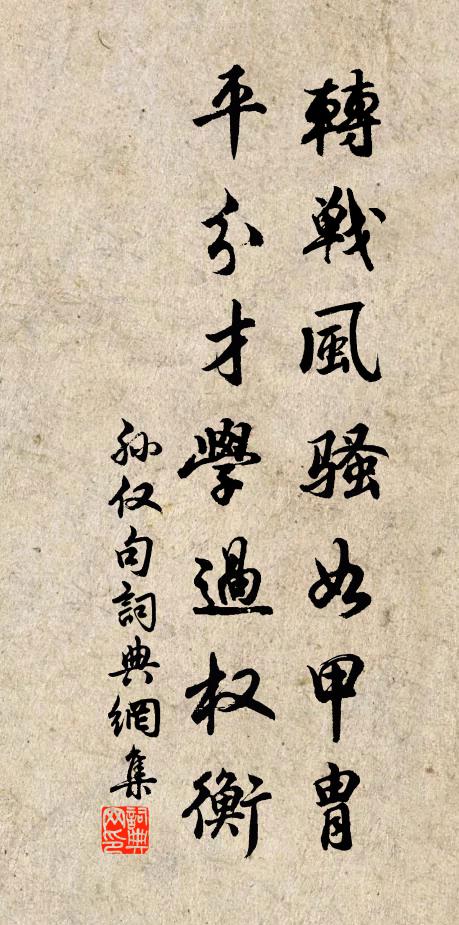 轉戰風騷如甲胄
平分才學過权衡
孙仅句詞典網集
詞典网印